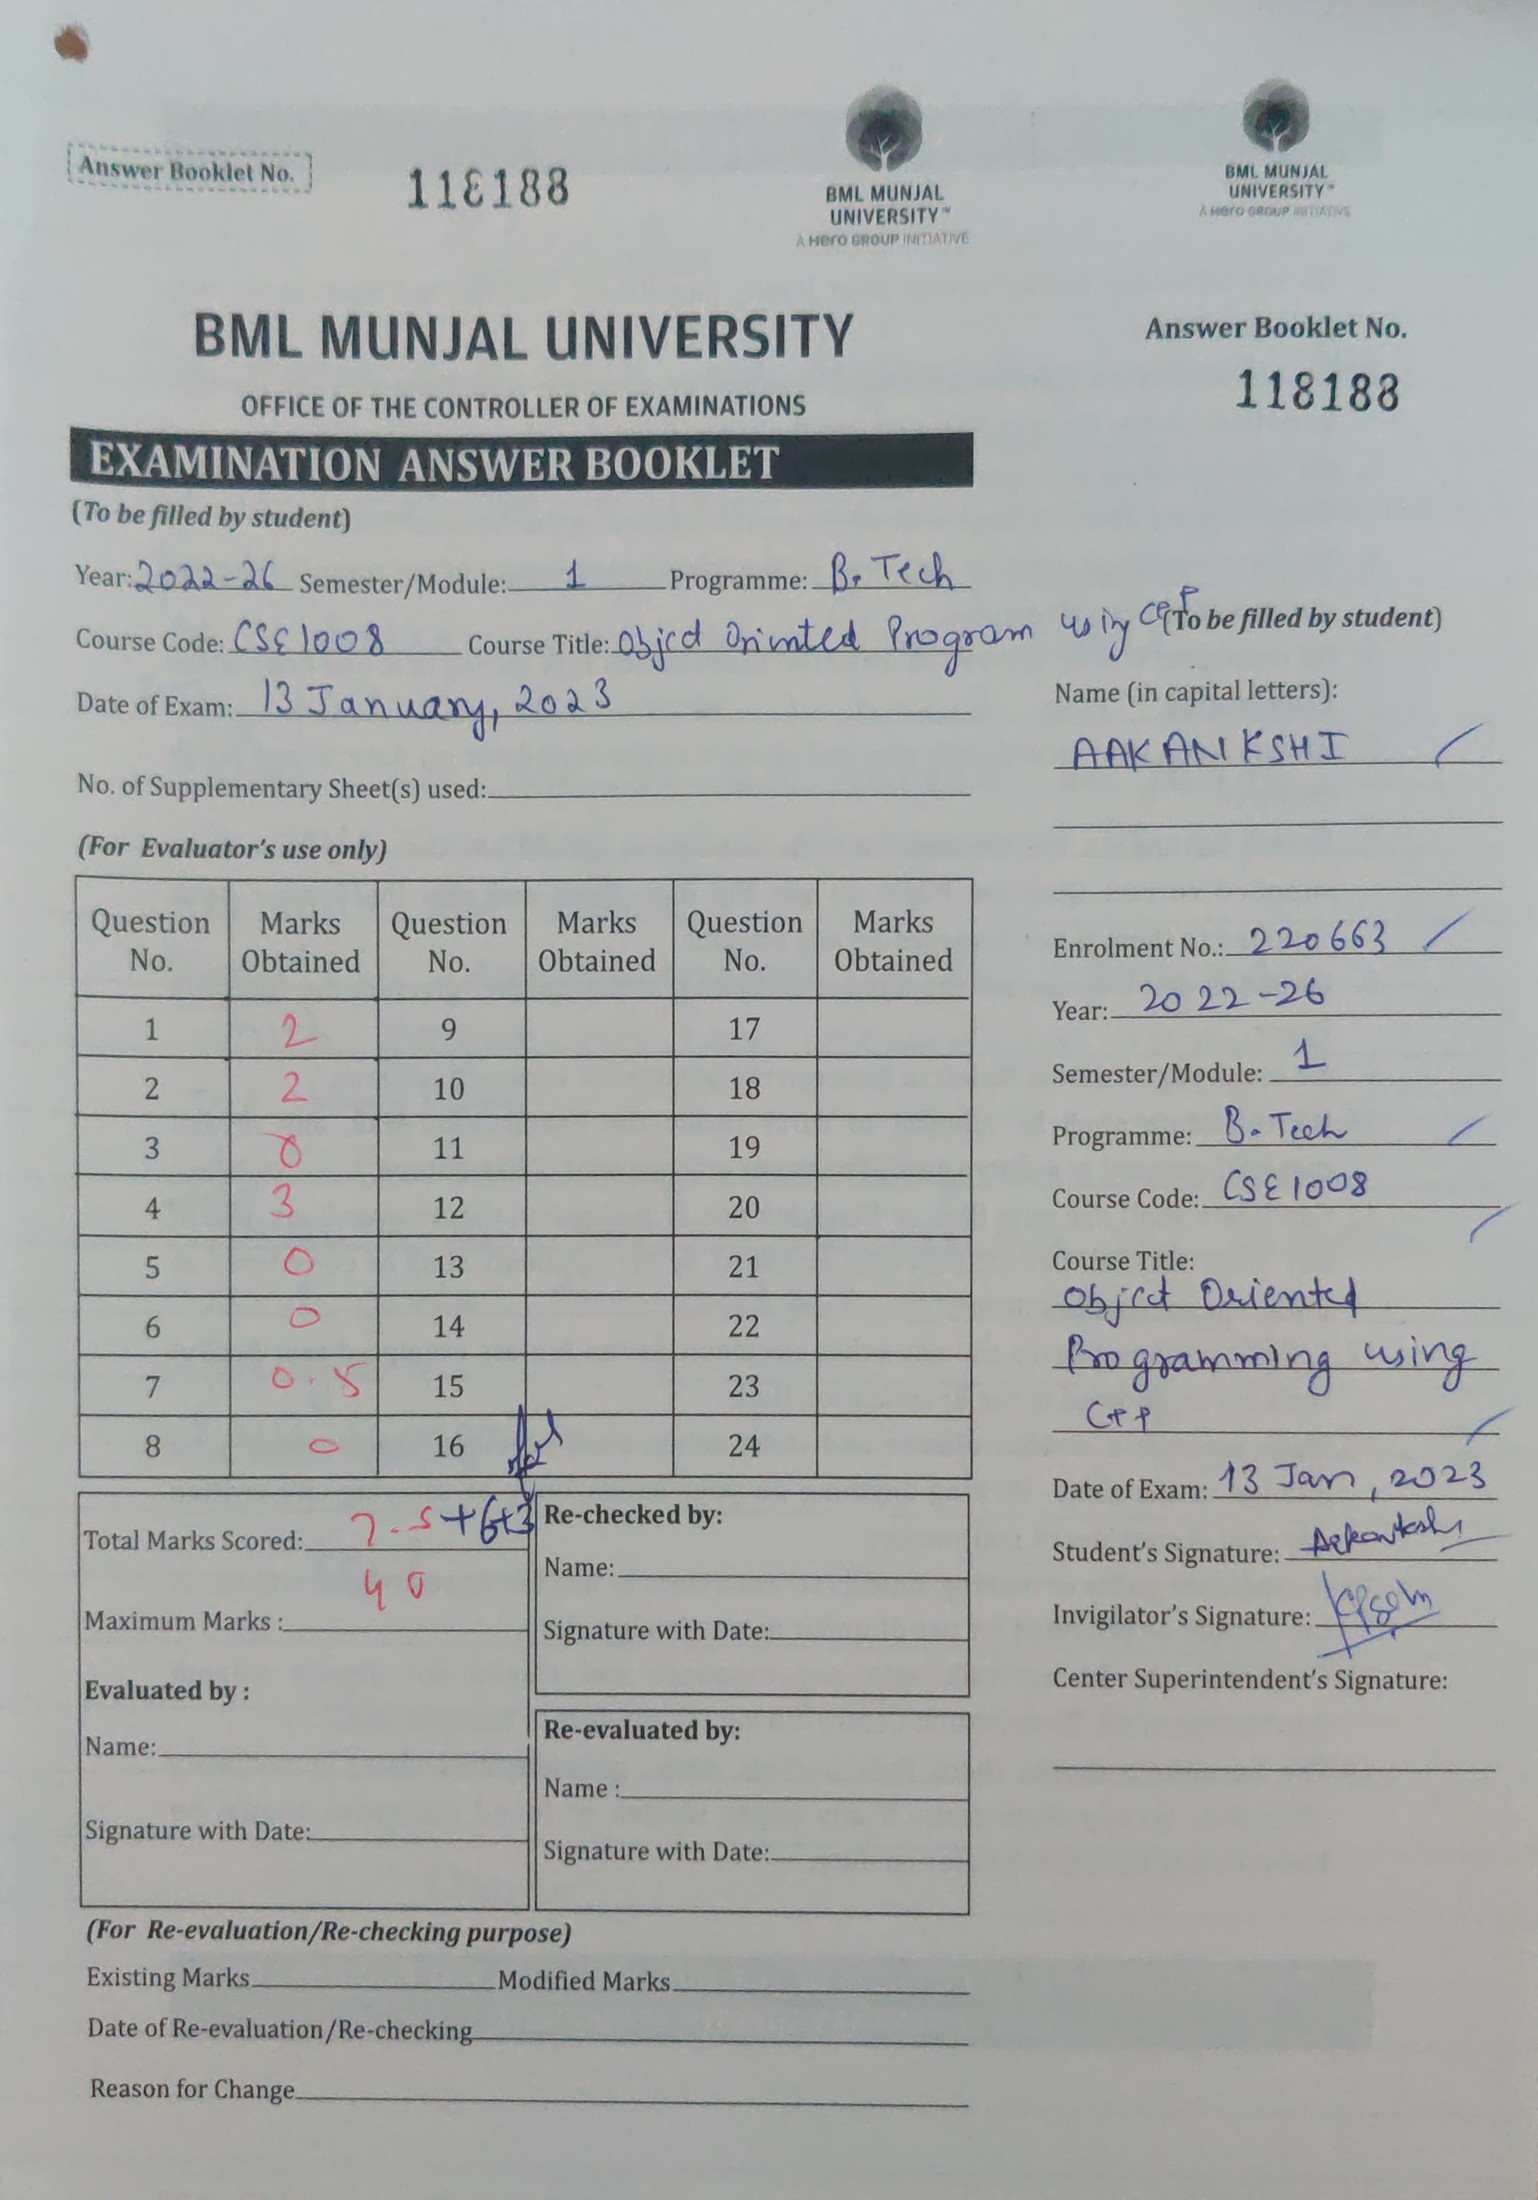 Answer Booklet No.
118188
BML MUNJAL
UNIVERSITY™
A Hero GROUP INITIATIVE
BML MUNJAL
UNIVERSITY™
A Hero GROUP INITIATIVE
BML MUNJAL UNIVERSITY
OFFICE OF THE CONTROLLER OF EXAMINATIONS
EXAMINATION ANSWER BOOKLET
(To be filled by student)
Year: 2022-26 Semester/Module: 1 Programme: B. Tech
Course Code: CSE1008 Course Title: Objcd Orinted Program using CPP
Date of Exam: 13 January, 2023
No. of Supplementary Sheet(s) used:
(For Evaluator's use only)
Question No. Marks Obtained Question No. Marks Obtained Question No. Marks Obtained
1 2 9 17
2 2 10 18
3 0 11 19
4 3 12 20
5 0 13 21
6 0 14 22
7 0.5 15 23
8 0 16 24
Total Marks Scored: 7.5+6+3
40
Maximum Marks :
Evaluated by :
Name:
Signature with Date:
Re-checked by:
Name:
Signature with Date:
Re-evaluated by:
Name :
Signature with Date:
(For Re-evaluation/Re-checking purpose)
Existing Marks Modified Marks
Date of Re-evaluation/Re-checking
Reason for Change
Answer Booklet No.
118188
(To be filled by student)
Name (in capital letters):
AAKANKSHI
Enrolment No.: 220663
Year: 2022-26
Semester/Module: 1
Programme: B. Tech
Course Code: CSE1008
Course Title:
Objrct Oriented
Programming using
CPP
Date of Exam: 13 Jan, 2023
Student's Signature: Aakankshi
Invigilator's Signature:
Center Superintendent's Signature: